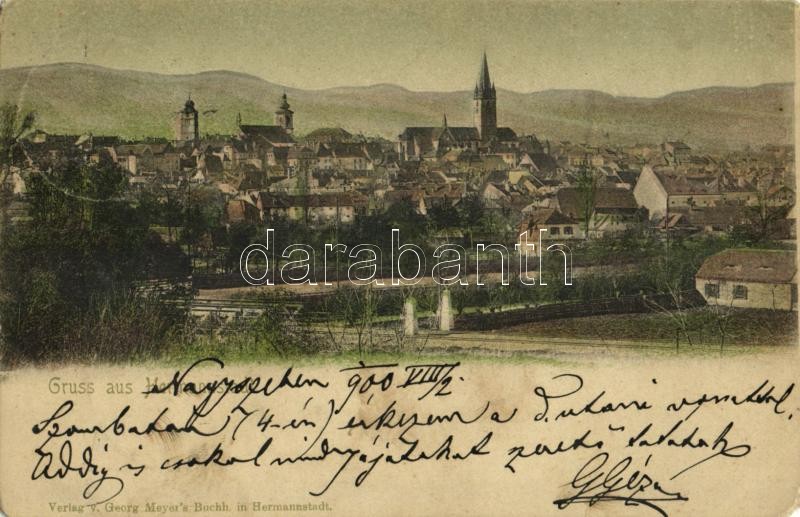 darabanth
Gruss aus Hermannstadt
Nagyszeben 900 VIII/2.
Szombaton (4-én) érkezem a d. utáni vonattal.
Addig is csókol mindnyájatokat szerető
G Géza
Verlag v. Georg Meyer's Buchh. in Hermannstadt.